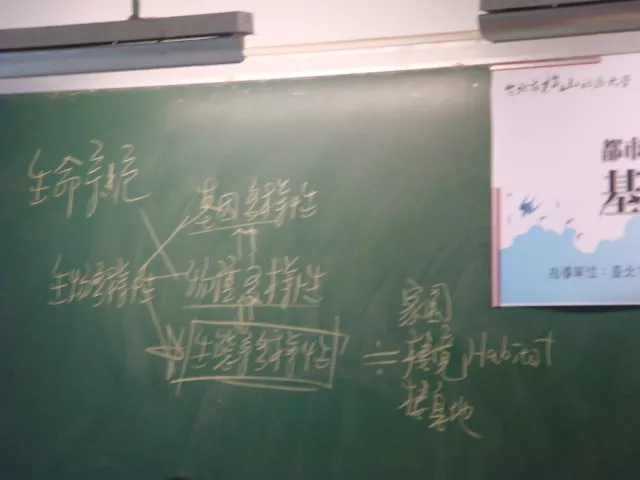 生命系統
基因多樣性
生物多樣性 物種多樣性
生態系多樣性
家園
環境 Habitat
棲息地
台北市松山社區大學
都市
基
指導單位：臺北